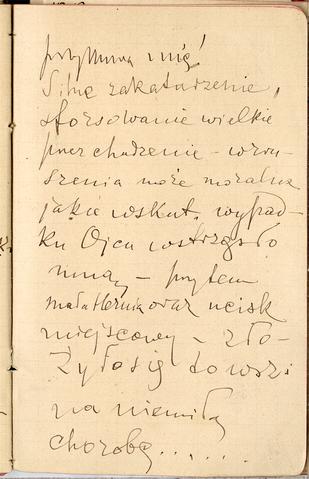 przytłumia i nię!
Silne zakatarzenie,
sforsowanie wielkie
przez chodzenie – wzru-
szenia może moralne
jakie wskut. wypad-
ku Ojca wstrzęsło
mną – przytem
małaternia oraz ucisk
miejscowy – zło-
żyło się to wszi
na niemiłą
chorobę......